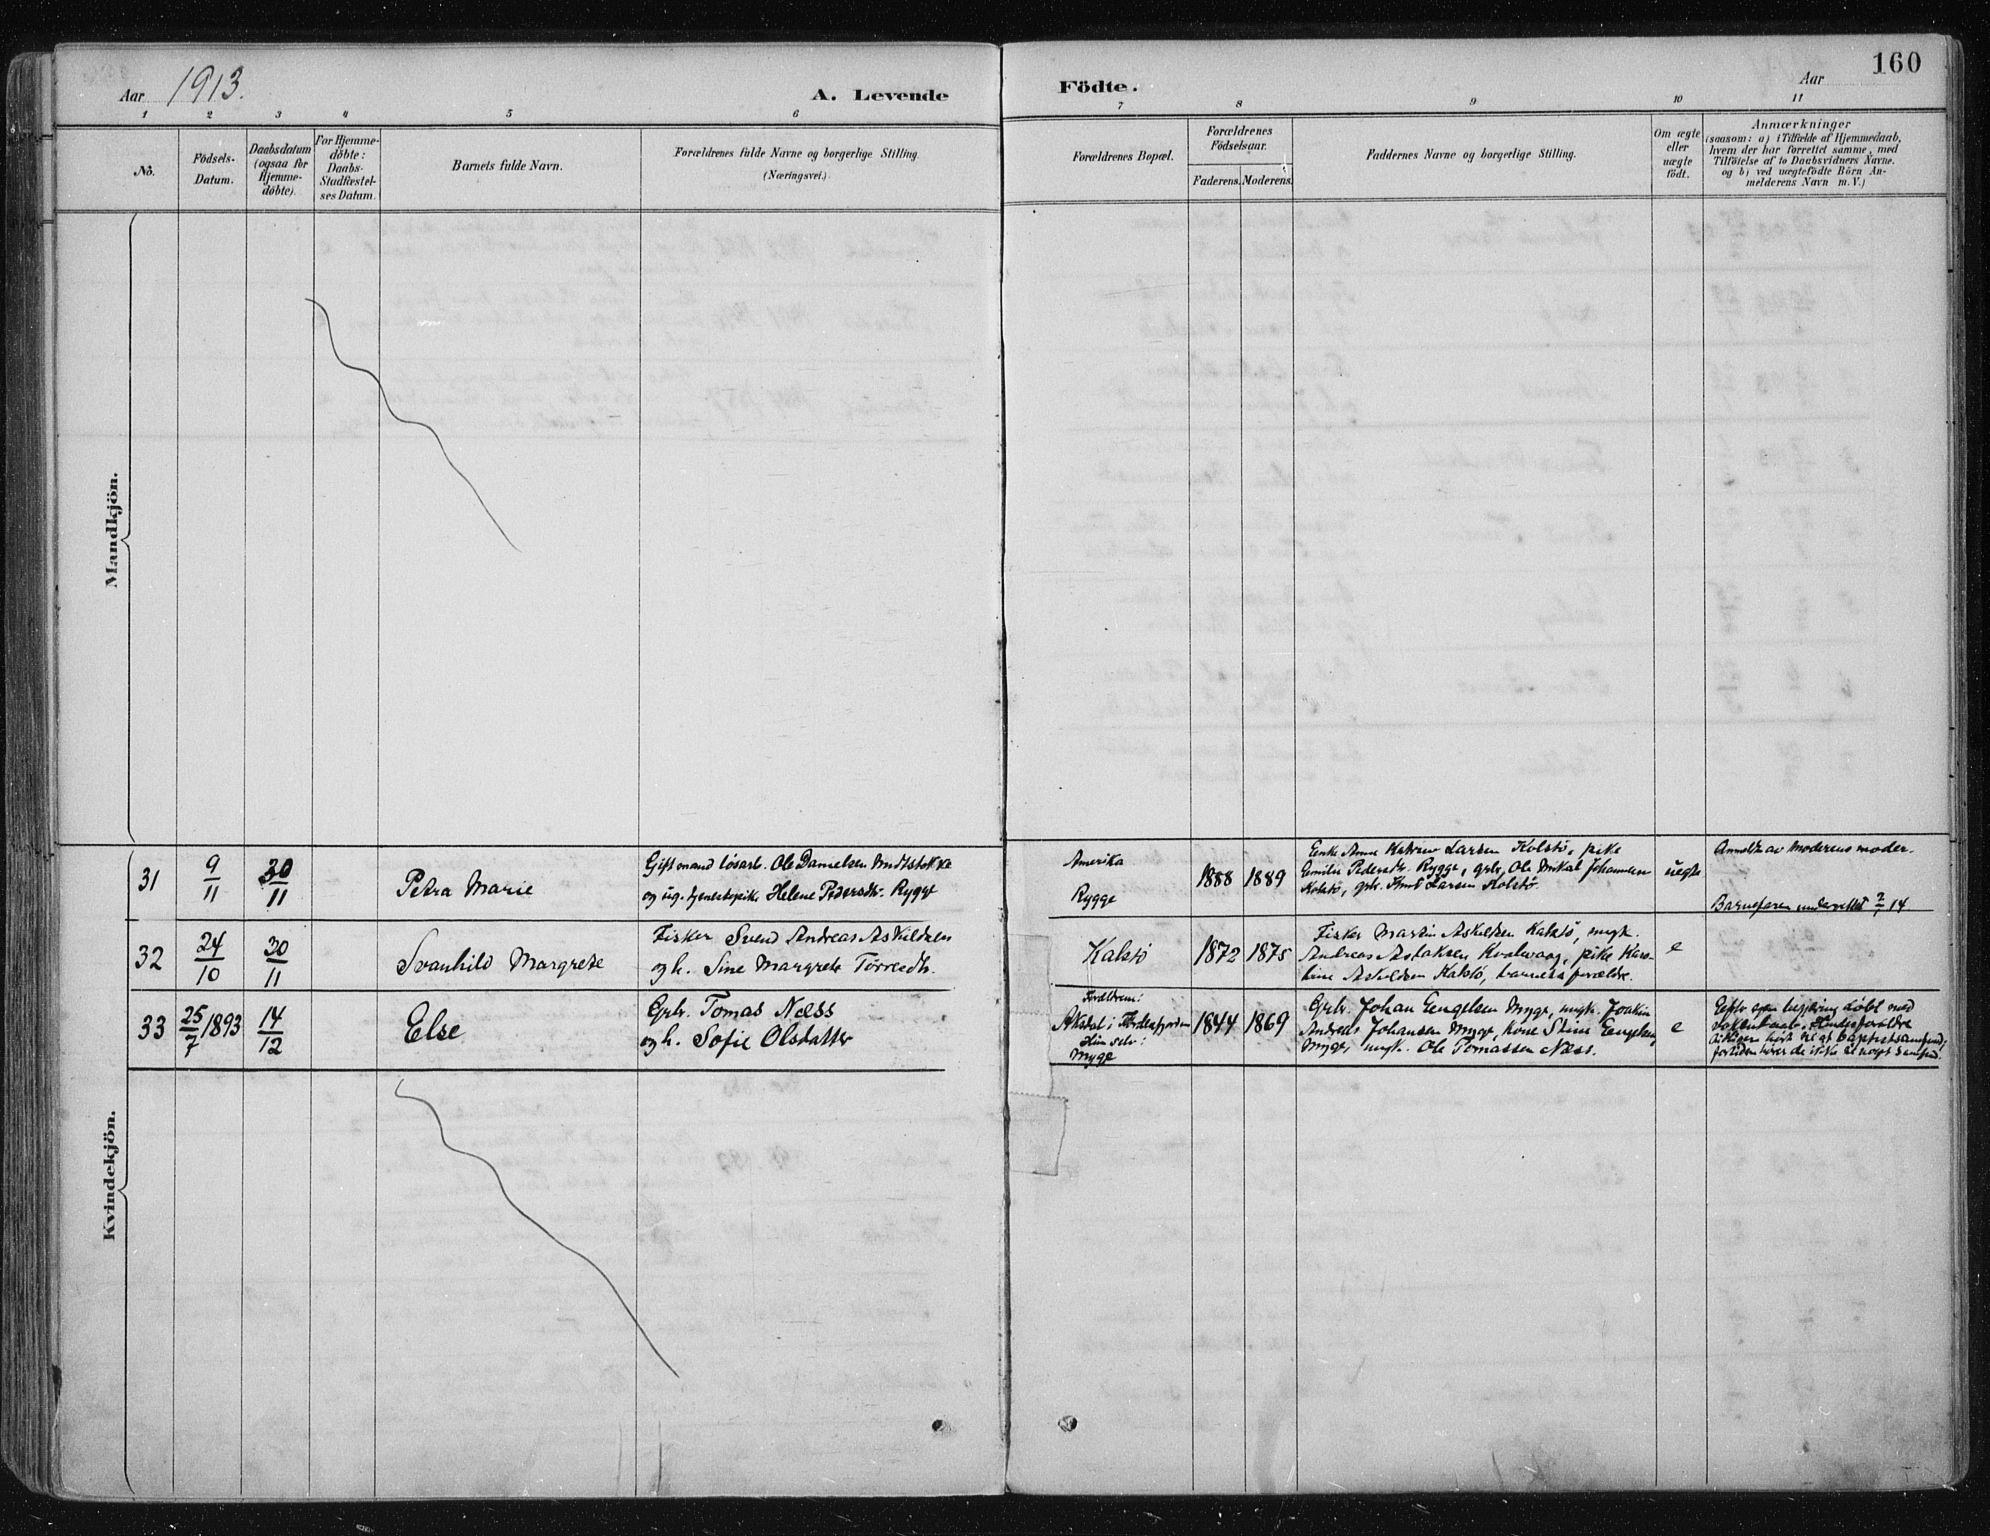 160
Aar 1913.
A. Levende Födte.
Aar
1 2 3 4 5 6 7 8 9 10 11
No.
Födsels-
Datum.
Daabsdatum
(ogsaa for
Hjemme-
döbte).
For Hjemme-
döbte:
Daabs-
Stadfæstel-
ses Datum.
Barnets fulde Navn.
Forældrenes fulde Navne og borgerlige Stilling.
(Næringsvei.)
Forældrenes Bopæl.
Forældrenes
Födselsaar.
Faderens. Moderens.
Faddernes Navne og borgerlige Stilling.
Om ægte
eller
uægte
født.
Anmærkninger
(saasom: a) i Tilfælde af Hjemmedaab,
hvem der har forrettet samme, med
Tilföielse af to Daabsvidners Navne.
og b) ved uægtefödte Börn An-
melderens Navn m. V.)
Mandkjön.
Kvindekjön.
31
9/11
30/11
Petra Marie
Gift mand løsarb. Ole Danielsen Midtstokke
og ug. tjenestepike Helene Pedersdtr. Rygge
Amerika
Rygge
1888 1889
Enke Anne Larsen Kolstø, pike
Emilie Pedersdtr. Rygge, grbr. Ole Mikal Johannesen
Kolstø, grbr. Knut Larsen Kolstø.
uegte
Anmeldt av moderens moder.
Barnefaren underrettet 2/1 14.
32
24/10
30/11
Svanhild Margrete
Fisker Svend Andreas Askildsen
og h. Sine Margrete Torresdtr.
Kalstø
1872 1875
Fisker Martin Askildsen Kalstø, ungk.
Andreas Kvalevaag, pike
Askildsen Kalstø, barnets forældre.
e
33
25/7 1893
14/12
Else
Grbr. Tomas Næss
og h. Sofie Olsdatter
Forældrene:
Aksdal i Førdesfjorden
Hun selv:
Myge
1844 1869
Grbr. Johan Engelsen Myge, ungk. Joakim
Andreas Johansen Myge, kone Stine Engelsen
Myge, ungk. Ole Tomassen Næss.
e
Efter egen begjæring døbt med
Hendes forældre
har tidligere hørt til et baptistsamfund,
for tiden hører de ikke til noget samfund.